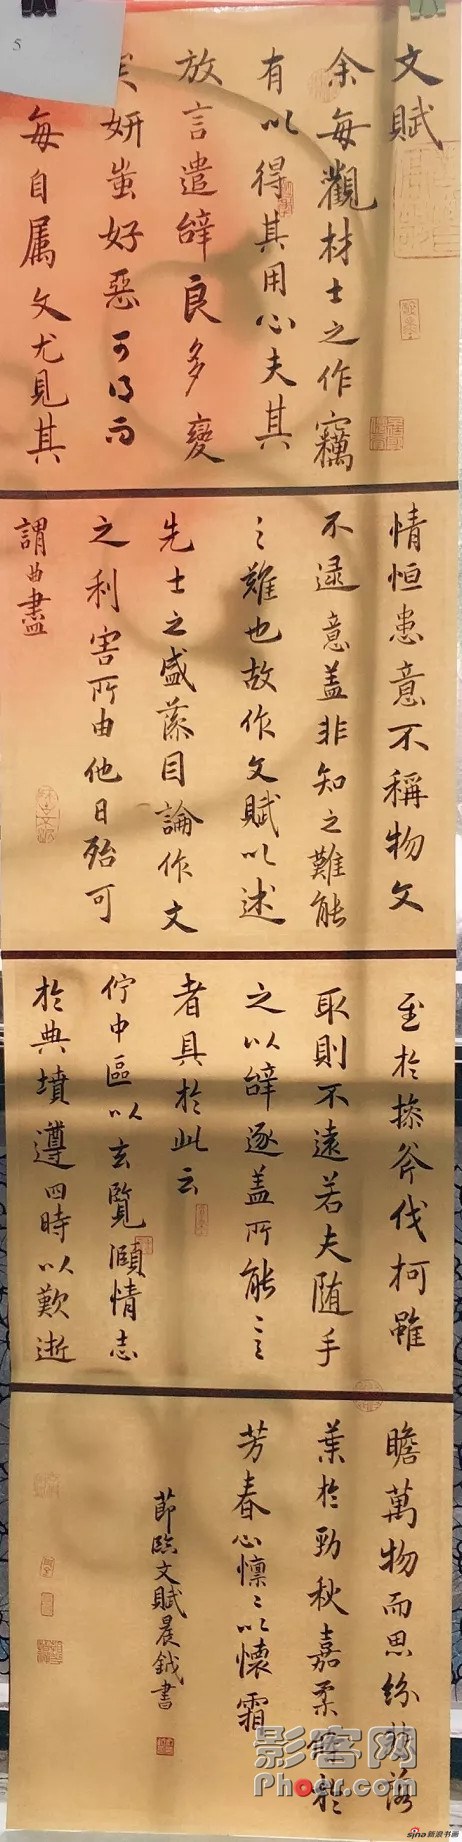 5
文賦
余每觀材士之作竊
有以得其用心夫其
放言遣辭良多變
矣妍蚩好惡可得而
每自属文尤見其
情恒患意不稱物文
不逮意蓋非知之難能
之難也故作文賦以述
先士之盛藻因論作文
之利害所由他日殆可
謂曲盡
至於操斧伐柯雖
取則不遠若夫随手
之以辭逐蓋所能言
者具於此云
佇中區以玄覽頤情志
於典墳遵四時以歎逝
瞻萬物而思紛落
葉於勁秋嘉柔於
芳春心懍懍以懷霜
節臨文賦晨鉞書
影客网
Phoer.com
sina新浪书画